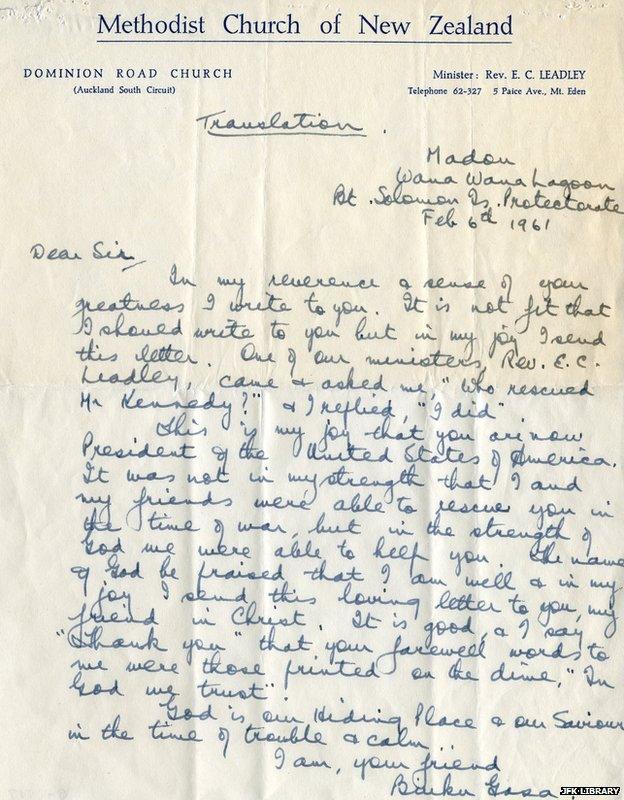 Methodist Church of New Zealand
DOMINION ROAD CHURCH
(Auckland South Circuit)
Minister: Rev. E. C. LEADLEY
Telephone 62-327 5 Paice Ave., Mt. Eden
Translation.
Madou
Wana Wana Lagoon
Bt. Solomon Is. Protectorate
Feb 6th 1961
Dear Sir,
In my reverence & sense of your
greatness I write to you. It is not fit that
I should write to you but in my joy I send
this letter. One of our ministers, Rev. E. C.
Leadley, came & asked me, "Who rescued
Mr Kennedy?" & I replied, "I did".
This is my joy that you are now
President of the United States of America.
It was not in my strength that I and
my friends were able to rescue you in
the time of war, but in the strength of
God we were able to help you. The name
of God be praised that I am well & in my
joy I send this loving letter to you, my
friend in Christ. It is good & I say
"Thank you" that your farewell words to
me were those printed on the dime, "In
God we trust".
God is our Hiding Place & our Saviour
in the time of trouble & calm.
I am, your friend
Biuku Gasa.
JFK LIBRARY